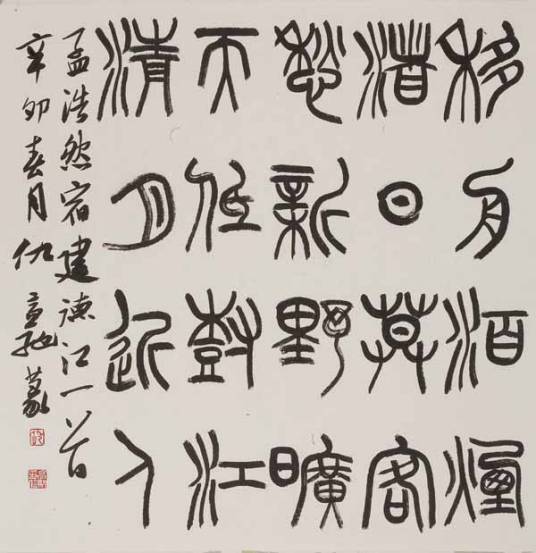 移舟泊煙
渚日莫客
愁新野曠
天低樹江
清月近人
孟浩然宿建德江一首
辛卯春月仇高馳篆